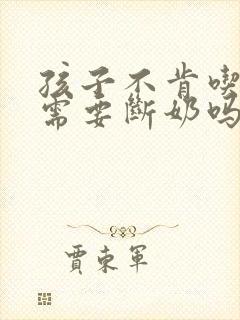 孩子不肯喫
需要斷奶吗
賈東軍